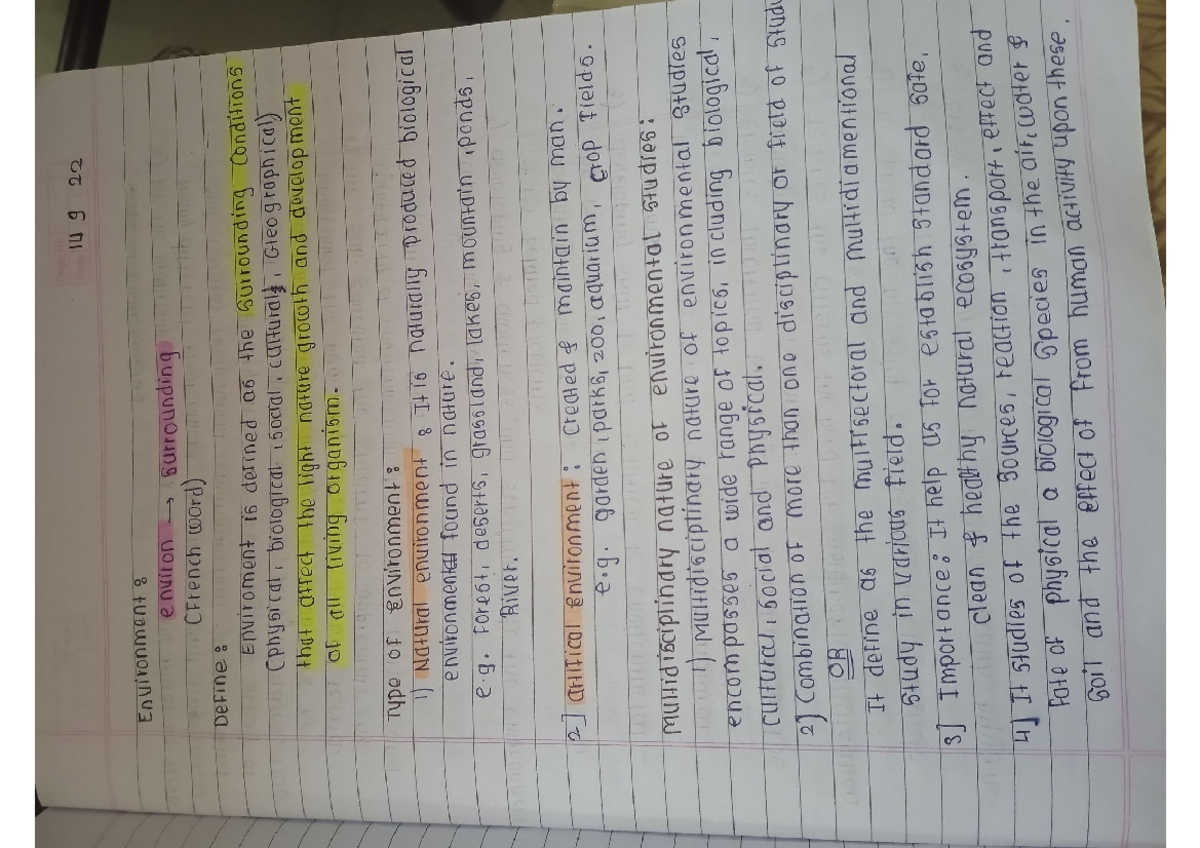 14 9 22
Environment :
environ → surrounding
(French word)
Define :
Enviroment is defined as the surrounding conditions
(physical, biological, social, cultural, Geographical)
that affect the light nature growth and development
of all living organism.
Type of Environment :
1) Natural environment : It is naturally produced biological
environmental found in nature.
e.g. forest, deserts, grassland, lakes, mountain, ponds,
River.
2] artifical environment : created & maintain by man.
e.g. garden, parks, zoo, aquarium, crop fields.
Multidisciplinary nature of environmental studies :
1) Multidisciplinary nature of environmental studies
encompasses a wide range of topics, including biological,
cultural, social and physical.
2) Combination of more than one disciplinary or field of stud
OR
It define as the multisectoral and multidiamentional
study in various field.
3] Importance : It help us for establish standard safe,
clean & healthy natural ecosystem.
4] It studies of the sources, reaction, transport, effect and
fate of physical a biological species in the air, water &
soil and the effect of from human activity upon these.